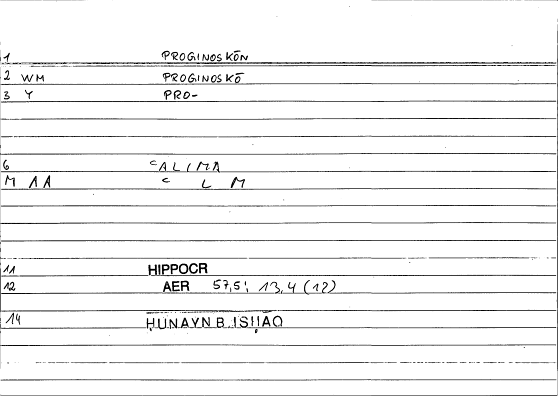 1 PROGINOSKŌN
2 WM PROGINOSKŌ
3 Y PRO-
6 ᶜALIMA
M AA ᶜ L M
11 HIPPOCR
12 AER 57,5; 13,4 (12)
14 ḤUNAYN B. ISḤĀQ